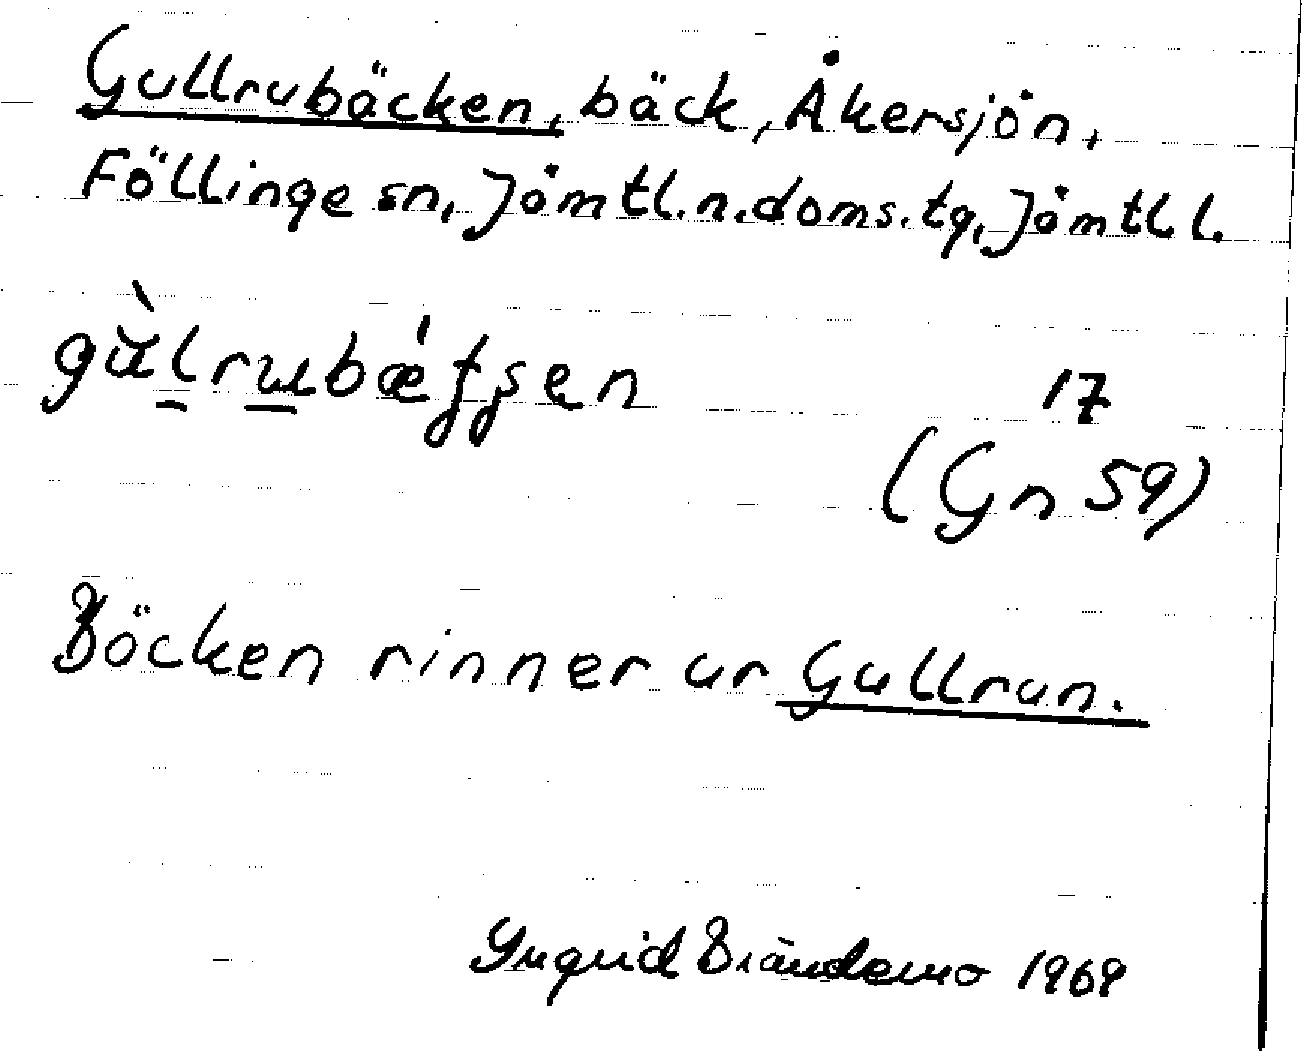 Gullrubäcken, bäck, Åkersjön,
Föllinge sn, Jämtl.n.doms.tg, Jämtl l.
17
(Gn 59)
Bäcken rinner ur Gullrun.
Ingrid Brändemo 1969